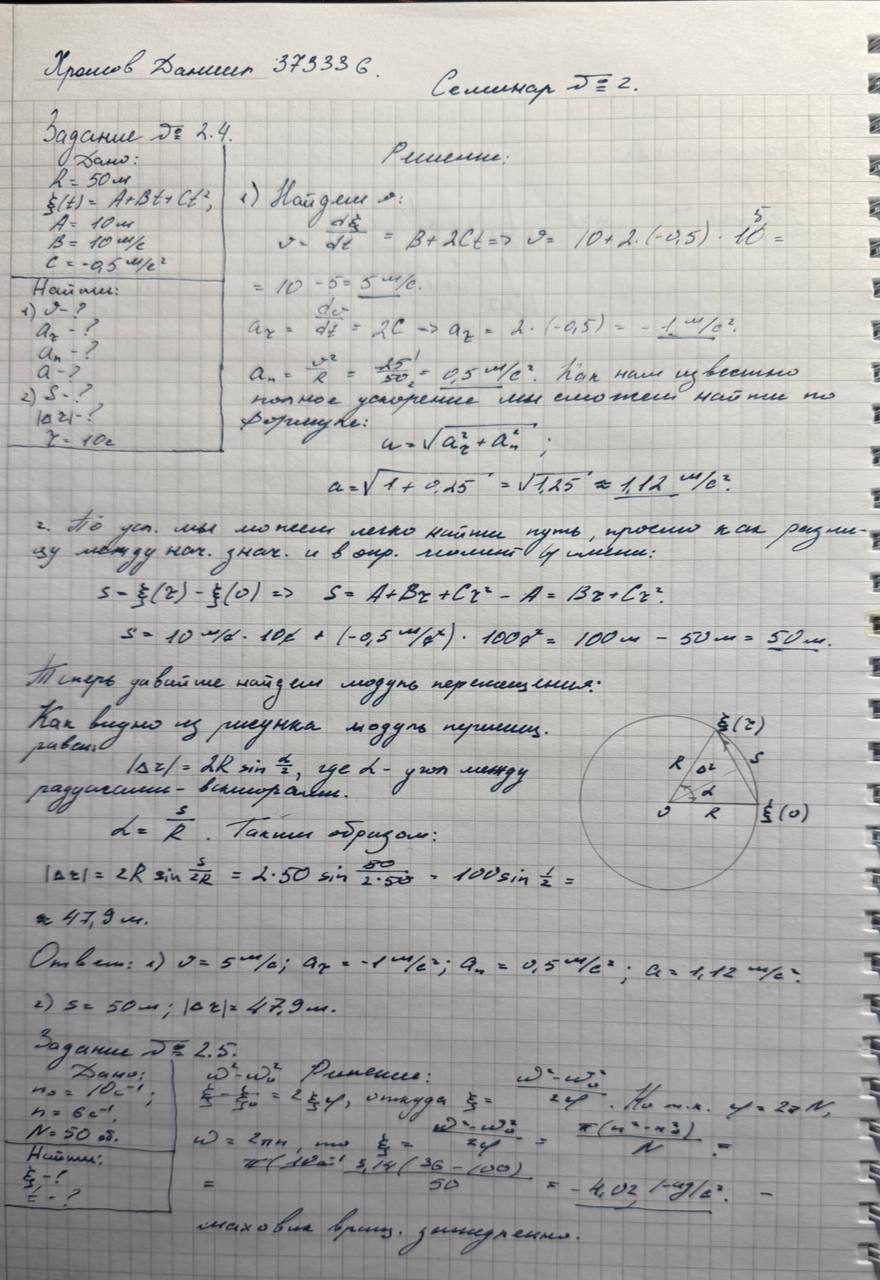 Хромов Даниил 373336.
Семинар № 2.
Задание № 2.4.
Дано:
R = 50 м
ξ(t) = A+Bt+Ct²,
A = 10 м
B = 10 м/с
C = -0,5 м/с²
Найти:
1) υ - ?
aτ - ?
an - ?
a - ?
2) S - ?
|Δr| - ?
τ = 10 с
Решение:
1) Найдем υ:
υ = dξ/dt = B + 2Ct => υ = 10 + 2·(-0,5)·10 5 =
= 10 - 5 = 5 м/с.
aτ = dυ/dt = 2C -> aτ = 2·(-0,5) = -1 м/с².
an = υ²/R = 25/50 = 0,5 м/с². Как нам известно
полное ускорение мы сможем найти по
формуле:
a = √(aτ² + an²) ;
a = √(1 + 0,25) = √1,25 ≈ 1,12 м/с².
2. По усл. мы можем легко найти путь, просто как разни-
цу между нач. знач. и в опр. момент времени:
S = ξ(τ) - ξ(0) => S = A+Bτ+Cτ² - A = Bτ+Cτ².
S = 10 м/с · 10с + (-0,5 м/с²) · 100с² = 100 м - 50 м = 50 м.
Теперь давайте найдем модуль перемещения:
Как видно из рисунка модуль перемещ.
равен:
|Δr| = 2R sin α/2, где α - угол между
радиусами-векторами.
α = S/R. Таким образом:
|Δr| = 2R sin S/2R = 2·50 sin 50/2·50 = 100 sin 1/2 =
≈ 47,9 м.
ξ(τ)
R Δr S
α
O R ξ(0)
Ответ: 1) υ = 5 м/с; aτ = -1 м/с²; an = 0,5 м/с²; a = 1,12 м/с².
2) S = 50 м; |Δr| = 47,9 м.
Задание № 2.5.
Дано:
n₀ = 10 с⁻¹;
n = 6 с⁻¹,
N = 50 об.
Найти:
ξ - ?
t - ?
Решение:
ω² - ω₀² = 2ξφ, откуда ξ = ω² - ω₀²/2φ. Но т.к. φ = 2πN,
ω = 2πn, то ξ = ω² - ω₀²/2φ = π(n² - n₀²)/N =
= 3,14(36 - 100)/50 = -4,02 рад/с². -
маховик вращ. замедленно.